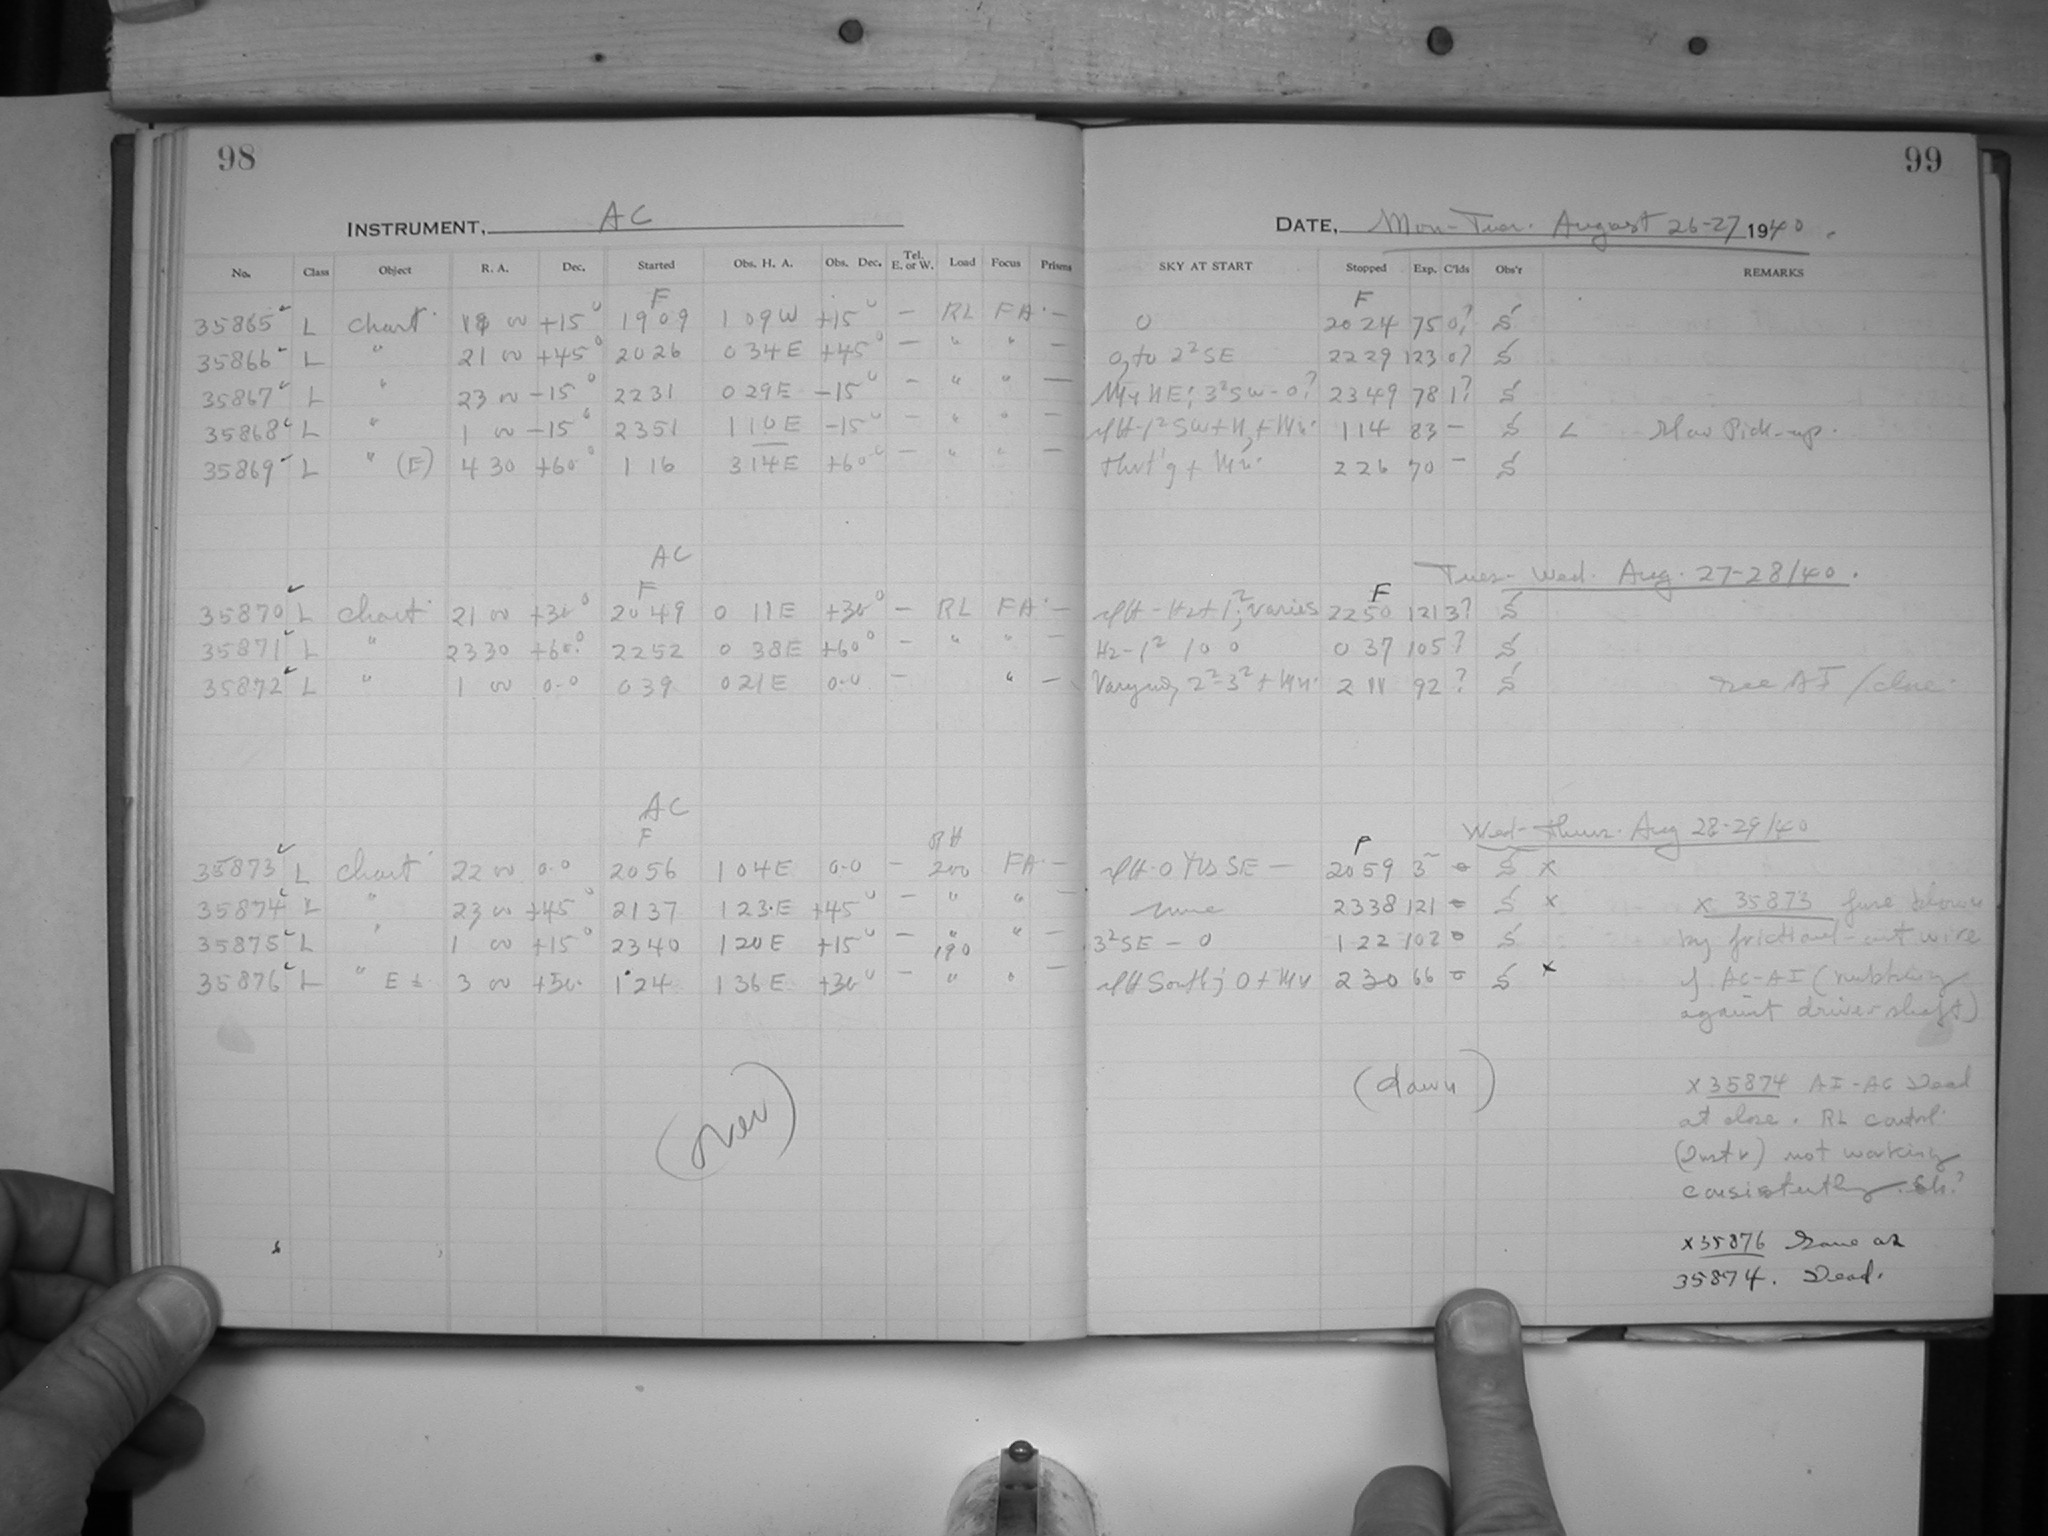 98
INSTRUMENT, AC
No. Class Object R. A. Dec. Started Obs. H. A. Obs. Dec. Tel. E. or W. Load Focus Prisms
F
35865 L chart 18 00 +15° 19 09 1 09 W +15° — RL FA. —
35866 L " 21 00 +45° 20 26 0 34 E +45° — " " —
35867 L " 23 00 -15° 22 31 0 29 E -15° — " " —
35868 L " 1 00 -15° 23 51 1 10 E -15° — " " —
35869 L " (E) 4 30 +60° 1 16 3 14 E +60° — " " —
AC
F
35870 L chart 21 00 +30° 20 49 0 11 E +30° — RL FA. —
35871 L " 23 30 +60° 22 52 0 38 E +60° — " " —
35872 L " 1 00 0.0 0 39 0 21 E 0.0 — " —
AC
F
35873 L chart 22 00 0.0 20 56 1 04 E 0.0 — RH 200 FA. —
35874 L " 23 00 +45° 21 37 1 23 E +45° — " " —
35875 L " 1 00 +15° 23 40 1 20 E +15° — " 190 " —
35876 L " E 3 00 +30 1 24 1 36 E +30° — " " —
(over)
99
DATE, Mon-Tues. August 26-27 1940.
SKY AT START Stopped Exp. C'lds Obs'r REMARKS
F
0 20 24 75 0? S
0, to 2² SE 22 29 123 0? S
NE; 3² SW - 0? 23 49 78 1? S
1² SW + 1 14 83 — S L Slow Pick-up.
+ 2 26 70 — S
Tues- Wed. Aug. 27-28/40.
F
Hz + 1²; varies 22 50 121 3? S
Hz - 1² / 0 0 0 37 105 ? S
Varying 2²-3² + 2 11 92 ? S See AI / close.
Wed- Thurs. Aug 28-29/40
F
SE — 20 59 3 S x
23 38 121 S x
3² SE - 0 1 22 102 0 S
South; 0 + 2 30 66 S x
x 35873 fuse blown
by frictional-cut wire
of AC-AI (rubbing
against driver shaft)
(dawn)
x 35874 AI-AC Dead
at close. RL control
(Instr) not working
consistently. Sh.?
x 35876 Same as
35874. Dead.